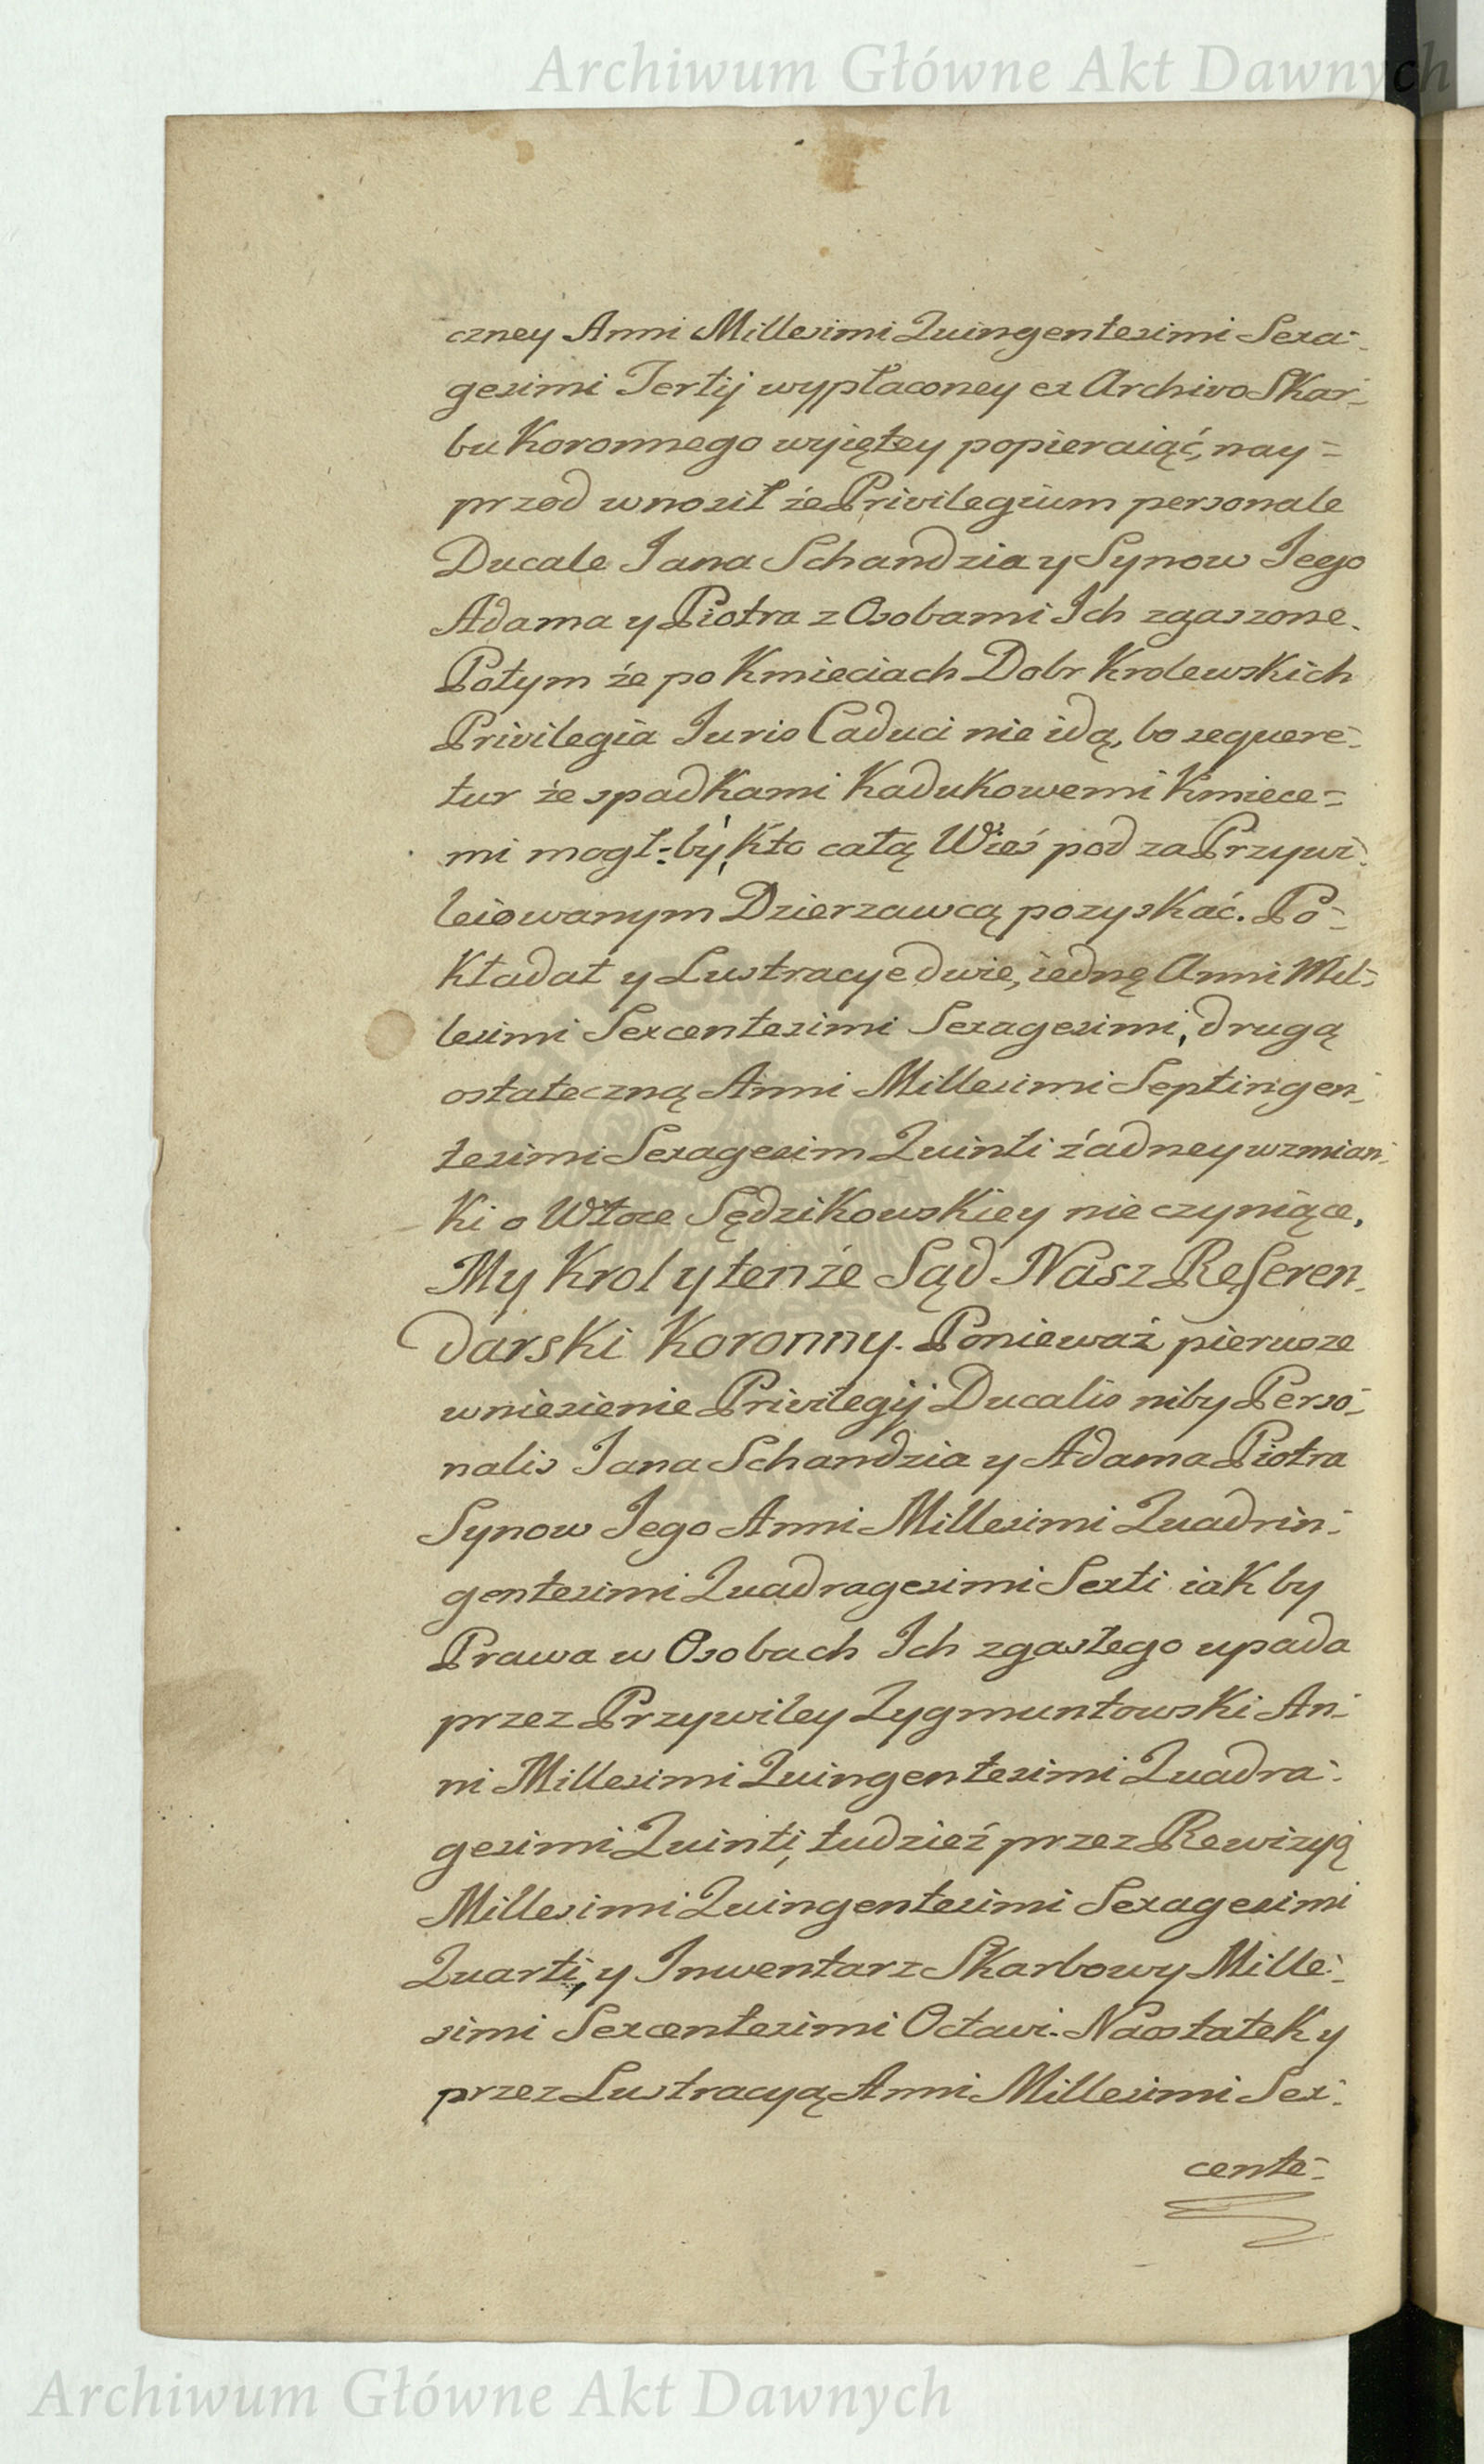 Archiwum Główne Akt Dawnych
czney Anni Millesimi Quingentesimi Sexa-
gesimi Tertij wypłaconey ex Archivo Skar-
bu Koronnego wyiętey popieraiąć, nay=
przod wnosił że Privilegium personale
Ducale Jana Schandzia y Synow Jego
Adama y Piotra z Osobami Ich zgaszone.
Potym że po Kmieciach Dobr Krolewskich
Privilegia Juris Caduci nie idą, bo sequere-
tur że spadkami Kadukowemi Kmiece=
mi mogł-by Kto całą Wieś pod za Przywi-
leiowanym Dzierzawcą pozyskać. Po-
kładał y Lustracye dwie, iednę Anni Mil-
lesimi Sexcentesimi Sexagesimi, drugą
ostateczną Anni Millesimi Septingen-
tesimi Sexagesim Quinti żadney wzmian-
ki o Włoce Sędzikowskiey nie czyniące,
My Krol y tenże Sąd Nasz Referen-
darski Koronny. Ponieważ pierwsze
wniesienie Privilegij Ducalis niby Perso-
nalis Jana Schandzia y Adama Piotra
Synow Jego Anni Millesimi Quadrin-
gentesimi Quadragesimi Sexti iak by
Prawa w Osobach Ich zgasłego upada
przez Przywiley Zygmuntowski An-
ni Millesimi Quingentesimi Quadra-
gesimi Quinti, tudzież przez Rewizyą
Millesimi Quingentesimi Sexagesimi
Quarti, y Inwentarz Skarbowy Mille-
simi Sexcentesimi Octavi. Naostatek y
przez Lustracyą Anni Millesimi Sex-
cente-
Archiwum Główne Akt Dawnych